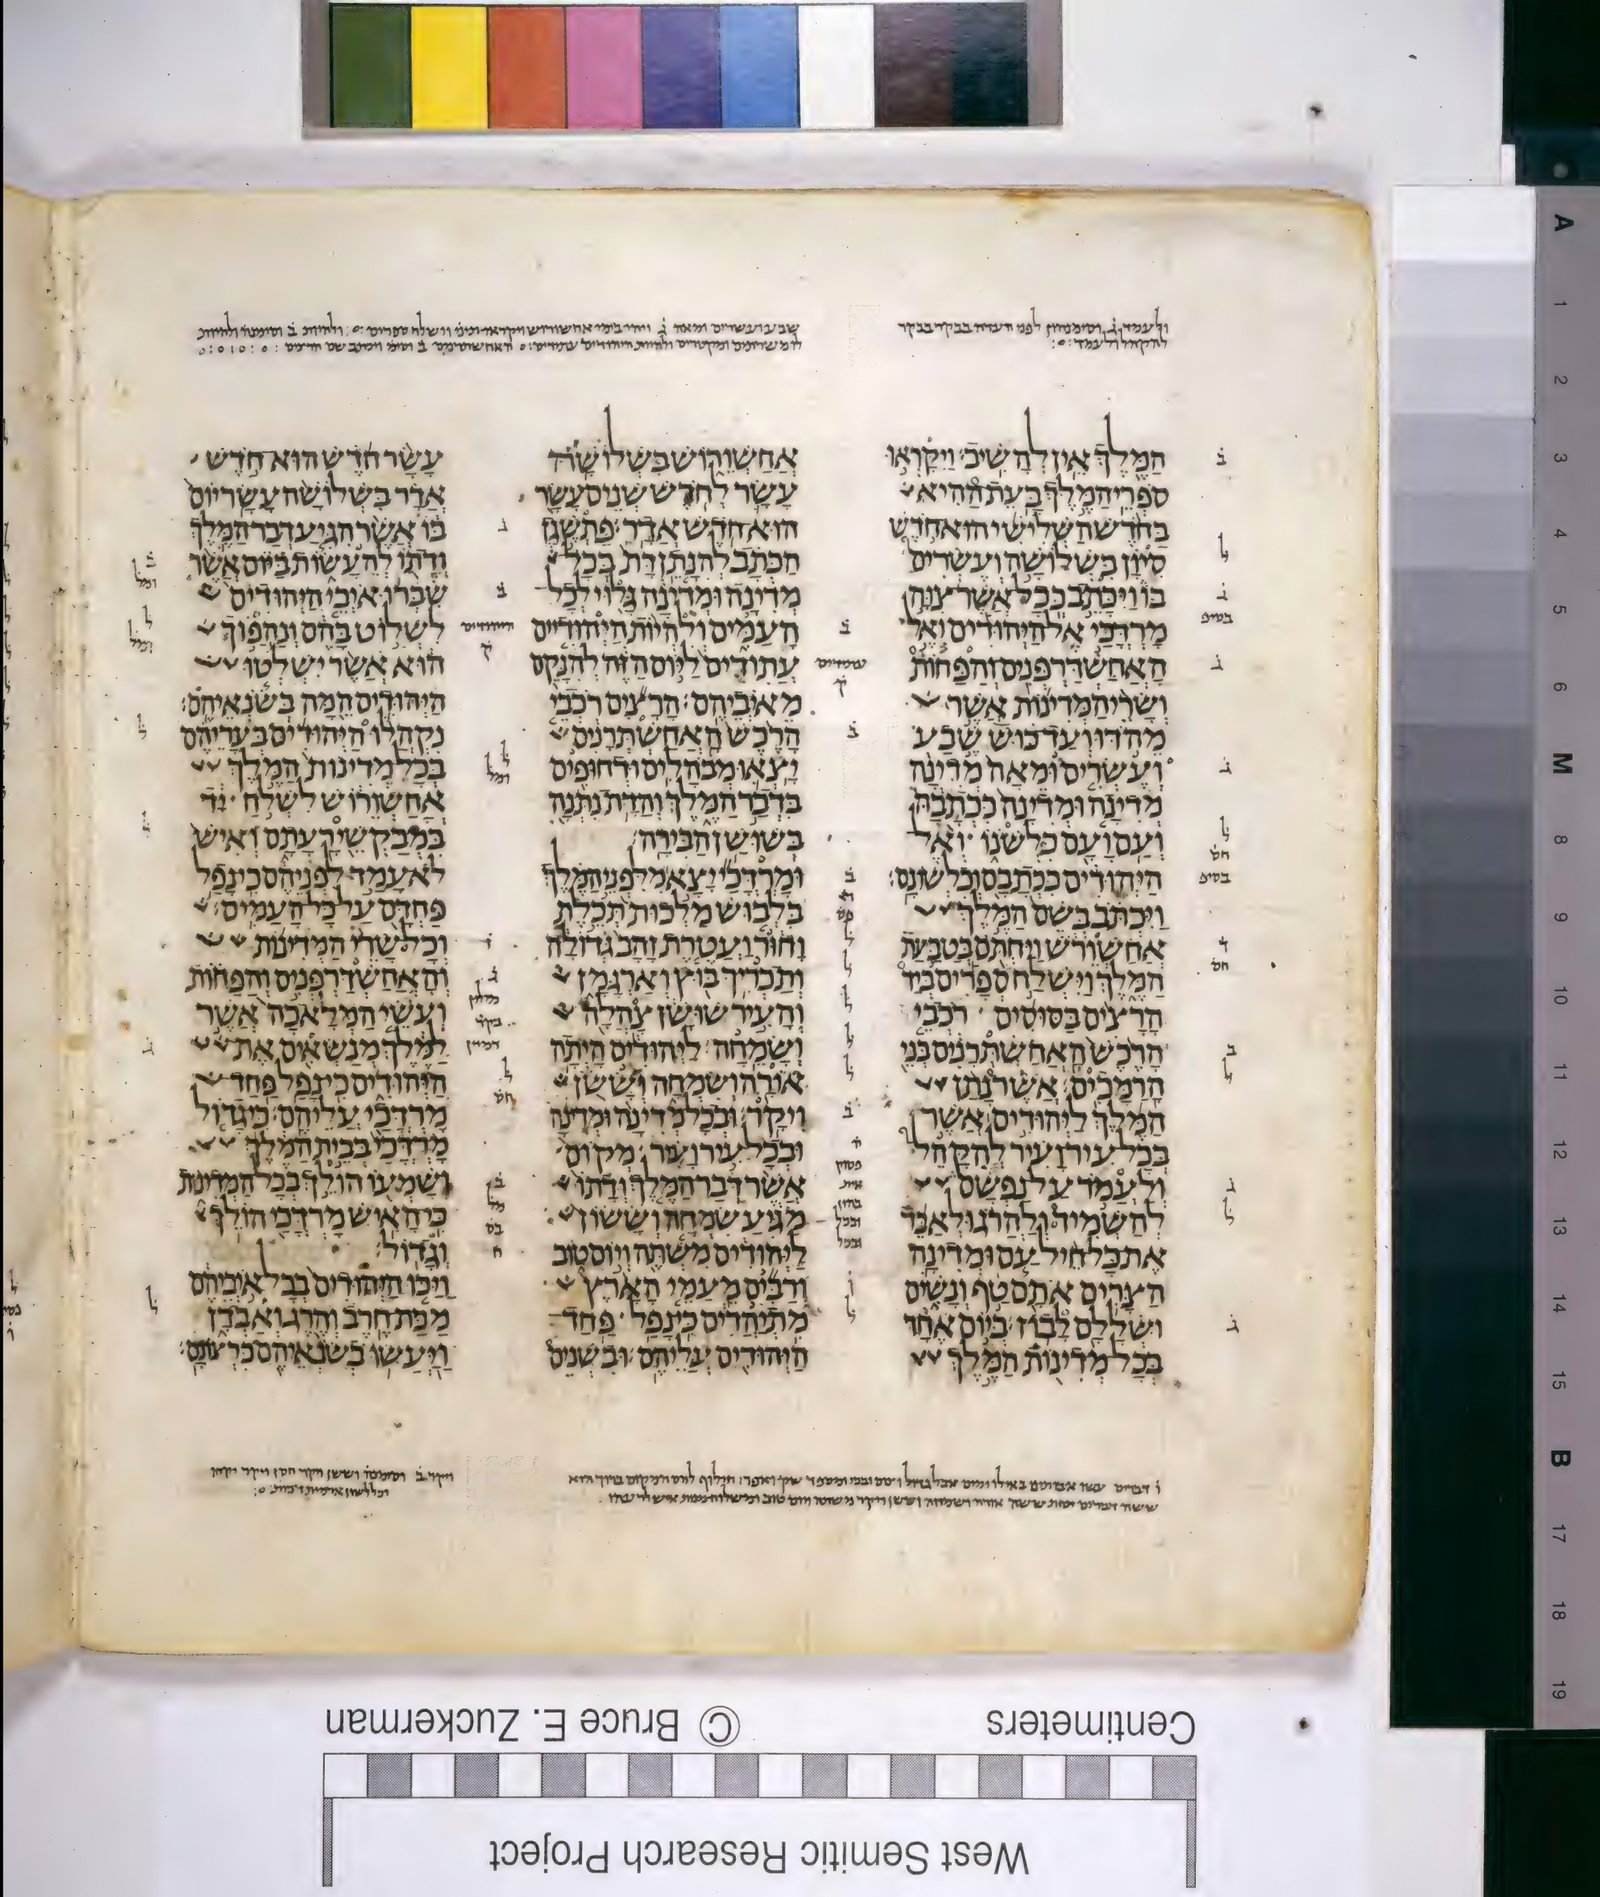 המלך אין להשיב׃ ויקראו
ספרי המלך בעת ההיא
בחדש השלישי הוא חדש
סיון בשלושה ועשרים
בו ויכתב ככל אשר צוה
מרדכי אל היהודים ואל
האחשדרפנים והפחות
ושרי המדינות אשר
מהדו ועד כוש שבע
ועשרים ומאה מדינה
מדינה ומדינה ככתבה
ועם ועם כלשנו ואל
היהודים ככתבם וכלשונם׃
ויכתב בשם המלך
אחשורש ויחתם בטבעת
המלך וישלח ספרים ביד
הרצים בסוסים רכבי
הרכש האחשתרנים בני
הרמכים׃ אשר נתן
המלך ליהודים אשר
בכל עיר ועיר להקהל
ולעמד על נפשם
להשמיד ולהרג ולאבד
את כל חיל עם ומדינה
הצרים אתם טף ונשים
ושללם לבוז׃ ביום אחד
בכל מדינות המלך
אחשורוש בשלושה
עשר לחדש שנים עשר
הוא חדש אדר׃ פתשגן
הכתב להנתן דת בכל
מדינה ומדינה גלוי לכל
העמים ולהיות היהודיים
עתודים ליום הזה להנקם
מאיביהם׃ הרצים רכבי
הרכש האחשתרנים
יצאו מבהלים ודחופים
בדבר המלך והדת נתנה
בשושן הבירה׃
ומרדכי יצא מלפני המלך
בלבוש מלכות תכלת
וחור ועטרת זהב גדולה
ותכריך בוץ וארגמן
והעיר שושן צהלה
ושמחה׃ ליהודים היתה
אורה ושמחה וששן
ויקר׃ ובכל מדינה ומדינה
ובכל עיר ועיר מקום
אשר דבר המלך ודתו
מגיע שמחה וששון
ליהודים משתה ויום טוב
ורבים מעמי הארץ
מתיהדים כי נפל פחד
היהודים עליהם׃ ובשנים
עשר חדש הוא חדש
אדר בשלושה עשר יום
בו אשר הגיע דבר המלך
ודתו להעשות ביום אשר
שברו איבי היהודים
לשלוט בהם ונהפוך
הוא אשר ישלטו
היהודים המה בשנאיהם׃
נקהלו היהודים בעריהם
בכל מדינות המלך
אחשורוש לשלח יד
במבקשי רעתם ואיש
לא עמד לפניהם כי נפל
פחדם על כל העמים׃
וכל שרי המדינות
והאחשדרפנים והפחות
ועשי המלאכה אשר
למלך מנשאים את
היהודים כי נפל פחד
מרדכי עליהם׃ כי גדול
מרדכי בבית המלך
ושמעו הולך בכל המדינות
כי האיש מרדכי הולך
וגדול׃
ויכו היהודים בכל איביהם
מכת חרב והרג ואבדן
ויעשו בשנאיהם כרצונם׃
© Bruce E. Zuckerman
Centimeters
West Semitic Research Project
A
1
2
3
4
5
6
M
8
9
10
11
12
13
14
15
B
17
18
19